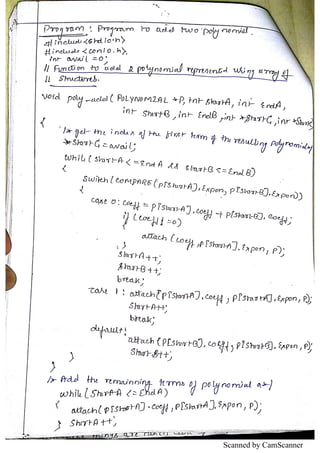 Program: Program to add two polynomial.
#include<stdio.h>
#include<conio.h>
int avail = 0;
// Function to add 2 polynomial represented using array of
// Structures.
void poly_add( POLYNOMIAL *P, int StartA, int EndA,
int StartB, int EndB, int *StartC, int *
{
/* get the index of the first term of the resulting polynomial */
*StartC = avail;
while( StartA <= EndA && StartB <= EndB)
{
Switch(COMPARE(P[StartA].Expon, P[StartB].Expon))
{
case 0: Coeff = P[StartA].Coeff + P[StartB].Coeff;
if (coeff !=0)
{
attach (coeff, P[StartA].Expon, P);
}
StartA++;
StartB++;
break;
case 1: attach(P[StartA].Coeff, P[StartA].Expon, P);
StartA++;
break;
default:
attach(P[StartB].Coeff, P[StartB].Expon, P);
StartB++;
}
}
/* Add the remainning terms of polynomial a */
while( StartA <= EndA)
{
attach( P[StartA].coeff, P[StartA].Expon, P);
StartA++;
}
Scanned by CamScanner